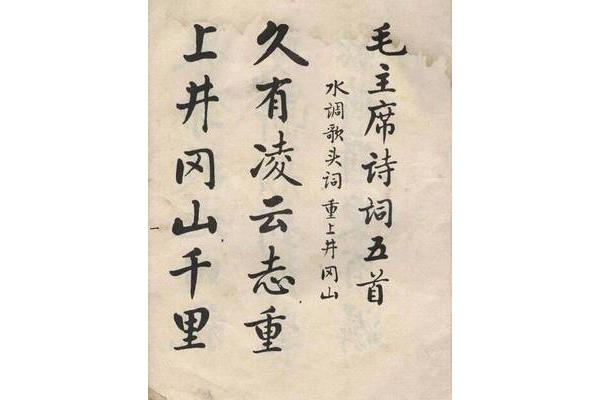 毛主席诗词五首
水调歌头词 重上井冈山
久有凌云志重
上井冈山千里